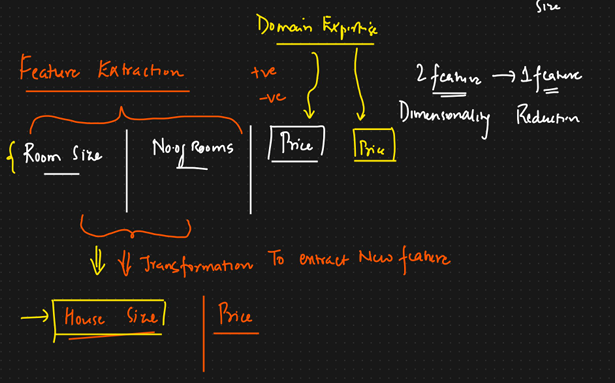 Size
Domain Expertise
Feature Extraction
+ve
-ve
2 feature → 1 feature
Dimensionality Reduction
{ Room Size
No. of Rooms
Price
Price
Transformation To extract New feature
→ House Size
Price